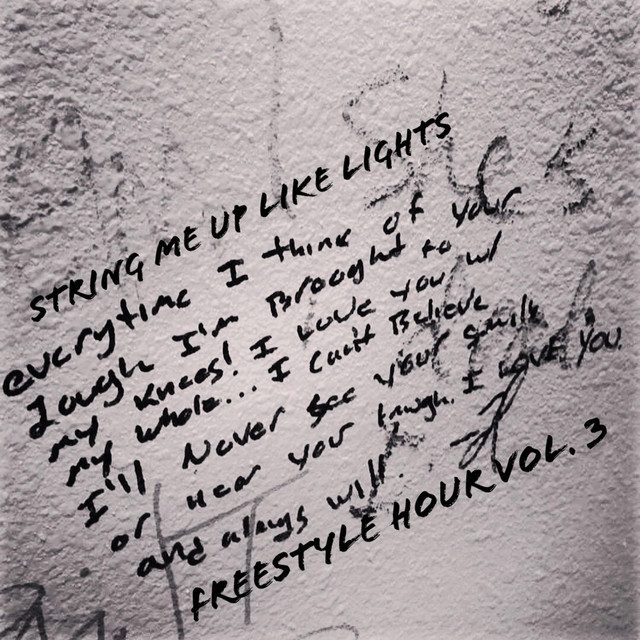 STRING ME UP LIKE LIGHTS
everytime I think of your
Laugh I'm Brought to
my knees! I love you w/
my whole... I can't Believe
I'll Never see your smile
or hear your laugh. I love you
and always will.
FREESTYLE HOUR VOL. 3